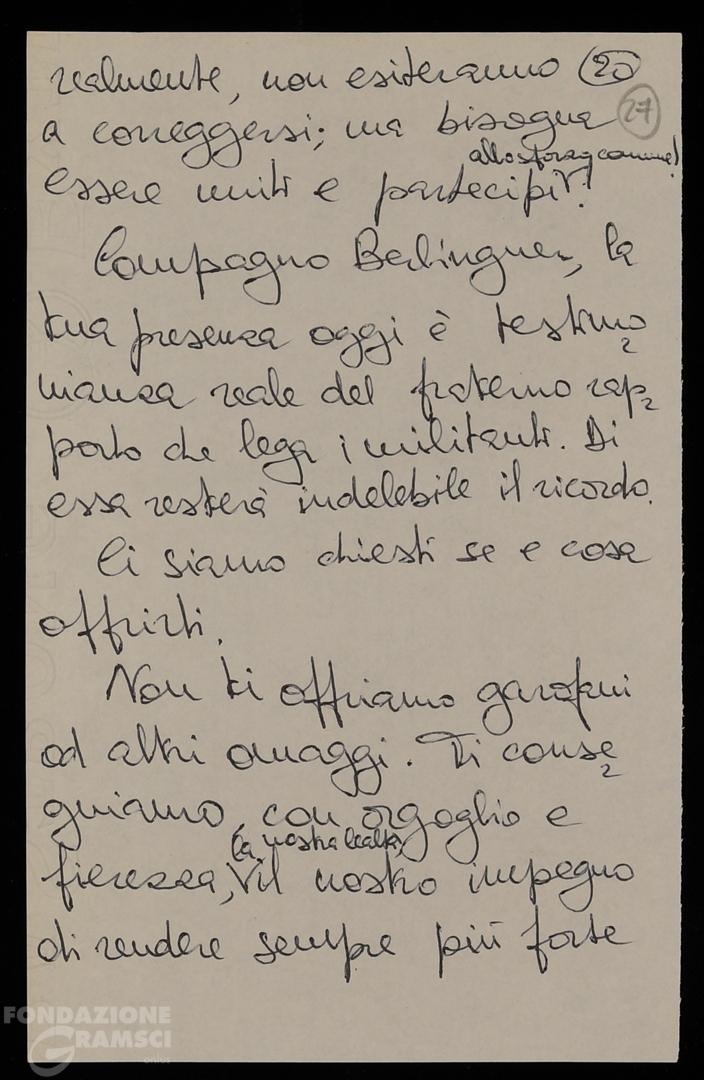 realmente, non esiteranno 20
27
a correggersi; ma bisogna
allo sforzo comune!
essere uniti e partecipi V!
Compagno Berlinguer, la
tua presenza oggi è testimo
nianza reale del fraterno rap
porto che lega i militanti. Di
essa resterà indelebile il ricordo.
Ci siamo chiesti se e cosa
offrirti.
Non ti offriamo garofani
od altri omaggi. Ti conse
gniamo, con orgoglio e
la nostra lealtà,
fierezza, V il nostro impegno
di rendere sempre più forte
FONDAZIONE
GRAMSCI
onlus